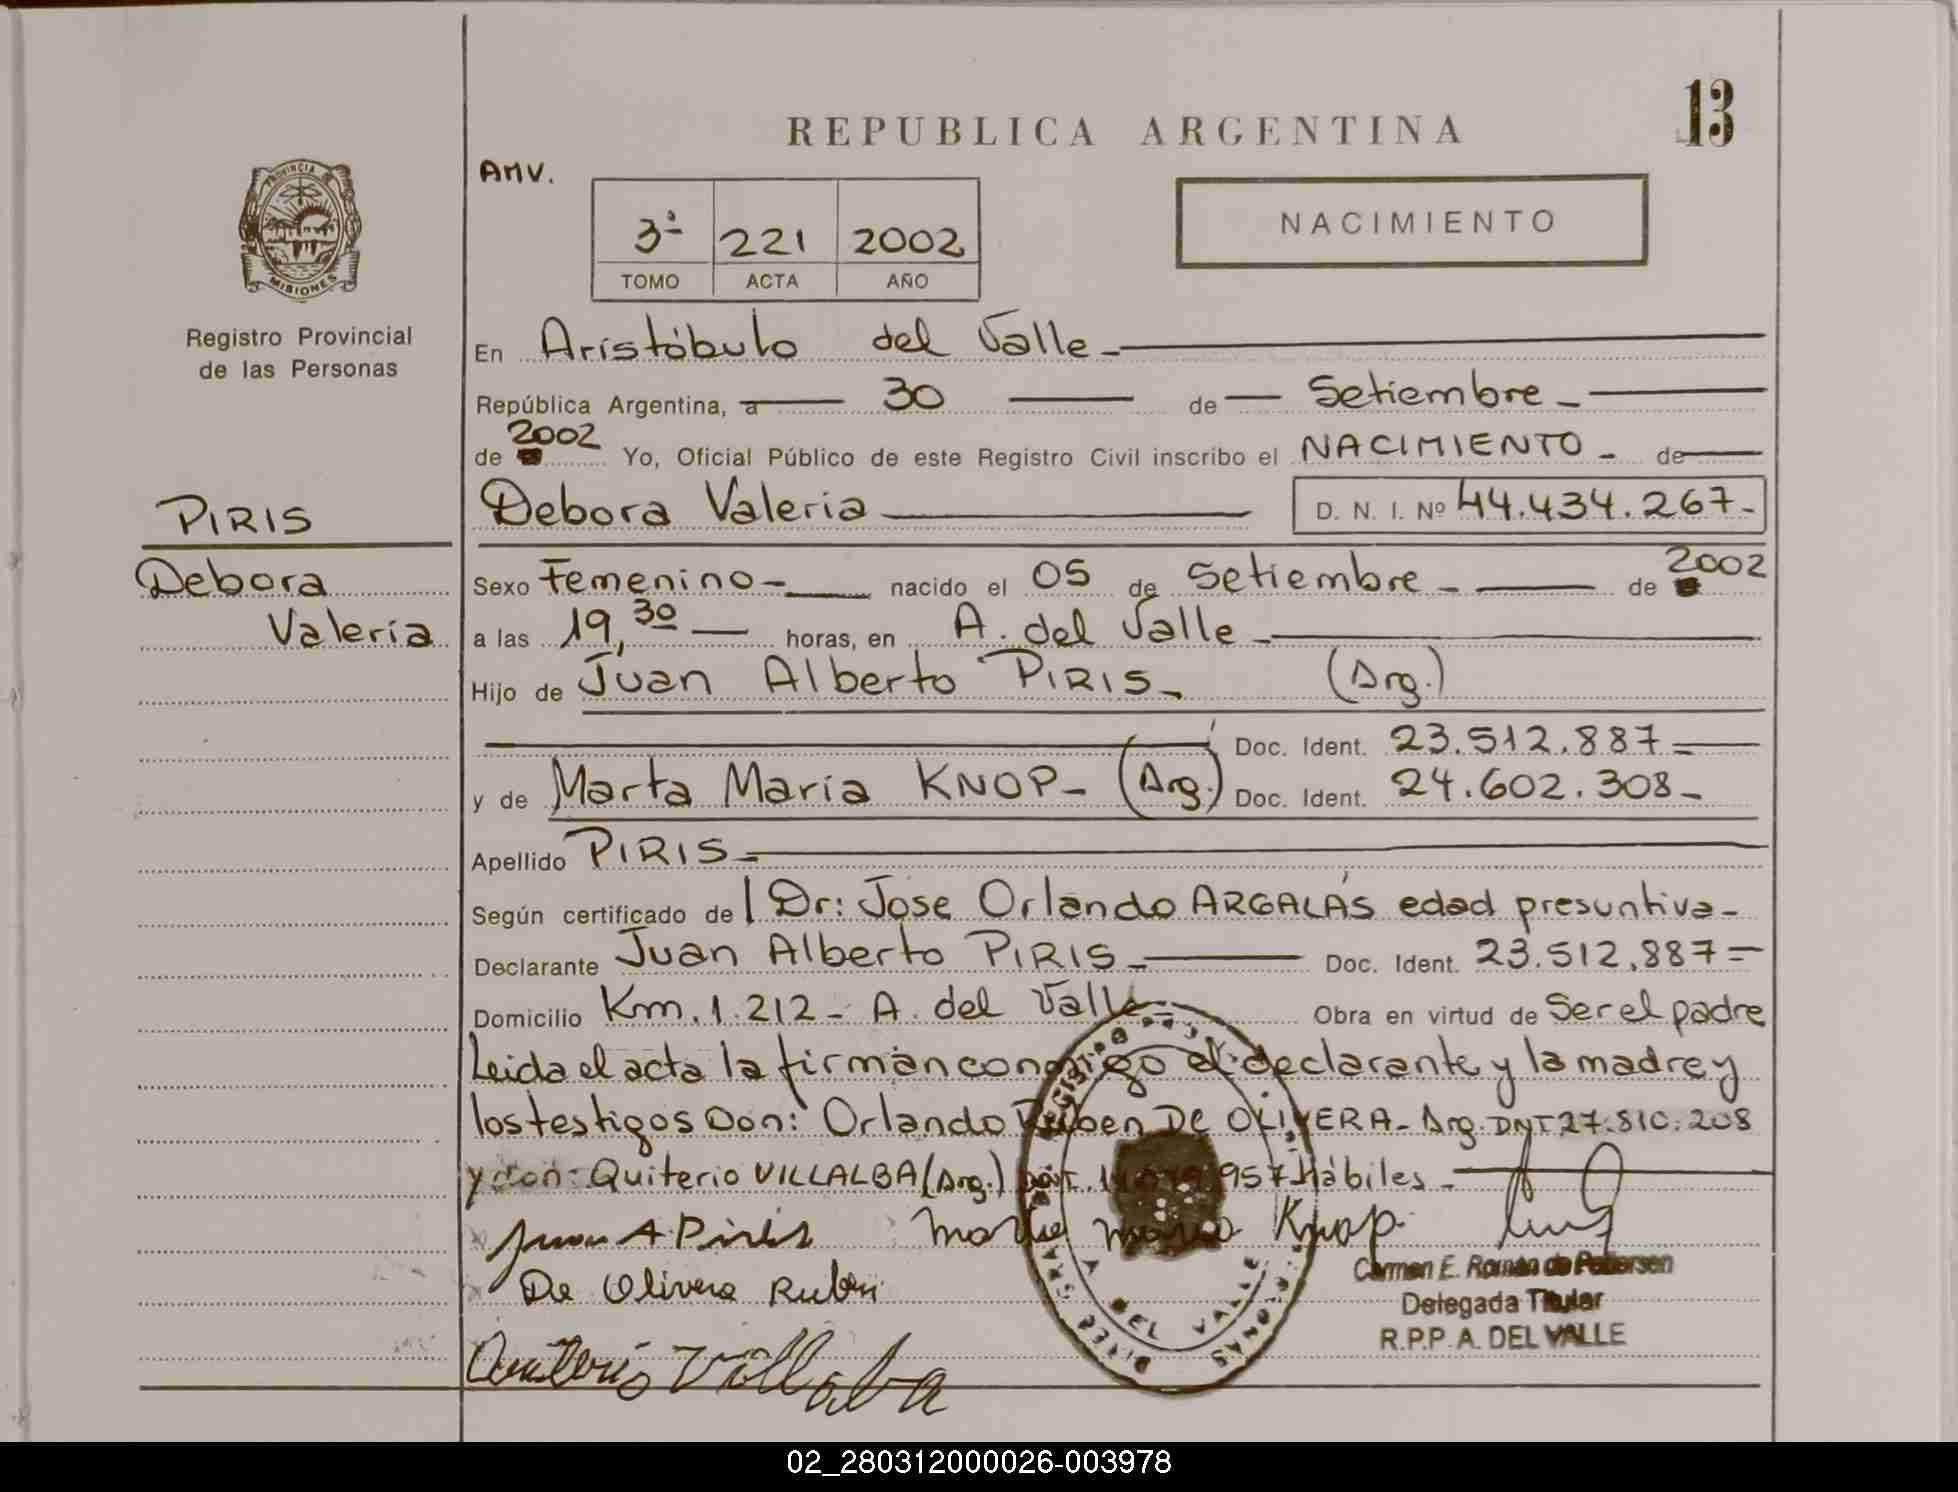 13
REPUBLICA ARGENTINA
AMV.
PROVINCIA DE
MISIONES
3ª 221 2002
TOMO ACTA AÑO
NACIMIENTO
Registro Provincial
de las Personas
En Aristóbulo del Valle
República Argentina, a 30 de Setiembre
de 2002 Yo, Oficial Público de este Registro Civil inscribo el NACIMIENTO de
PIRIS
Debora
Valeria
Debora Valeria D. N. I. Nº 44.434.267
Sexo Femenino nacido el 05 de Setiembre de 2002
a las 19,30 horas, en A. del Valle
Hijo de Juan Alberto PIRIS (Arg.)
Doc. Ident. 23.512.887
y de Marta Maria KNOP (Arg.) Doc. Ident. 24.602.308
Apellido PIRIS
Según certificado de Dr: Jose Orlando ARGALÁS edad presuntiva
Declarante Juan Alberto PIRIS Doc. Ident. 23.512.887
Domicilio Km. 1.212 - A. del Valle Obra en virtud de Ser el padre
Leida el acta la firman conmigo el declarante y la madre y
los testigos Don: Orlando Ruben DE OLIVERA - Arg. DNI 27.810.208
y don: Quiterio VILLALBA (Arg.) 957 Hábiles
Juan A Piris Marta Maria Knop
De Olivera Ruben
Carmen E. Roman de
Delegada Titular
R.P.P. A. DEL VALLE
Quiterio Villalba
REGISTRO
A. DEL VALLE
02_280312000026-003978